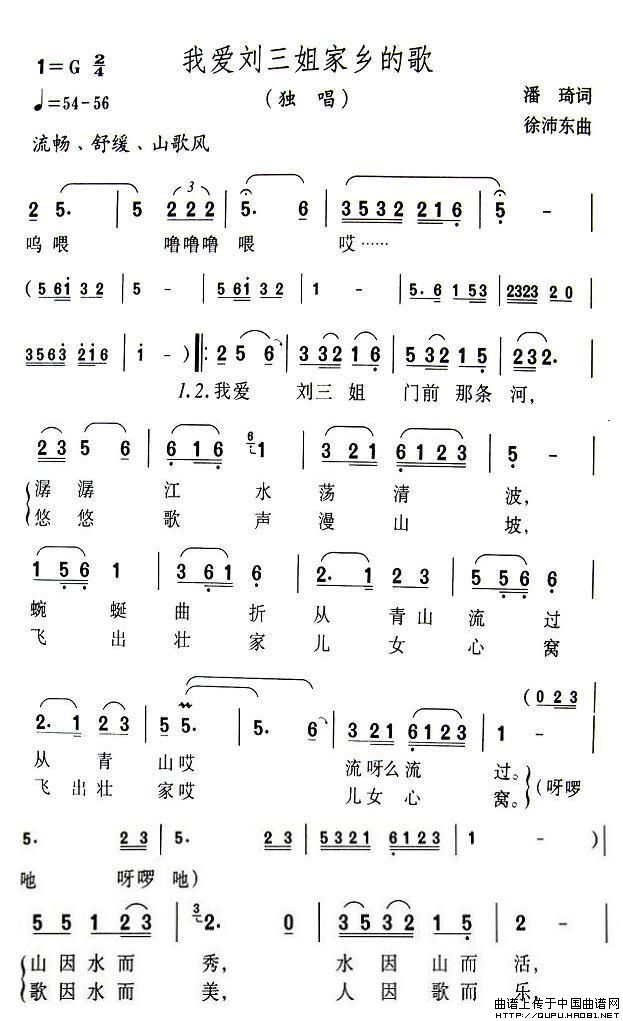 我爱刘三姐家乡的歌
1=G 2/4
（独 唱）
♩=54-56
潘 琦词
徐沛东曲
流畅、舒缓、山歌风
2 5. | 5 2 2 2 | 5. 6 | 3 5 3 2 2 1 6 | 5 - |
呜 喂 噜噜噜 喂 哎……
(5 61 3 2 | 5 - | 5 61 3 2 | 1 - | 5. 6 1 53 | 2323 2 0 |
3563 216 | 1 - ) ‖: 2 5 6 | 3 32 1 6 | 5 32 1 5 | 232. |
1.2.我爱 刘三 姐 门前 那条 河，
2 3 5 6 | 6 1 6 1 | 3 21 6123 | 5 - |
潺 潺 江 水 荡 清 波，
悠 悠 歌 声 漫 山 坡，
1 56 1 | 3 61 6 | 2. 1 2 3 | 5 56 6 |
蜿 蜒 曲 折 从 青山 流 过
飞 出 壮 家 儿 女 心 窝
2. 1 2 3 | 5 5. | 5. 6 | 3 21 6123 | 1 - | (0 23
从 青 山哎 流呀么流 过。
飞 出壮 家哎 儿女 心 窝。（呀啰
5. 23 | 5. 23 | 5321 6123 | 1 - ) |
吔 呀啰 吔）
5 5 1 23 | 2. 0 | 3 53 2 1 5 | 2 - |
山因水而 秀， 水 因 山而 活，
歌因水而 美， 人 因 歌而 乐，
曲谱上传于中国曲谱网
http://QUPU.HAO81.NET